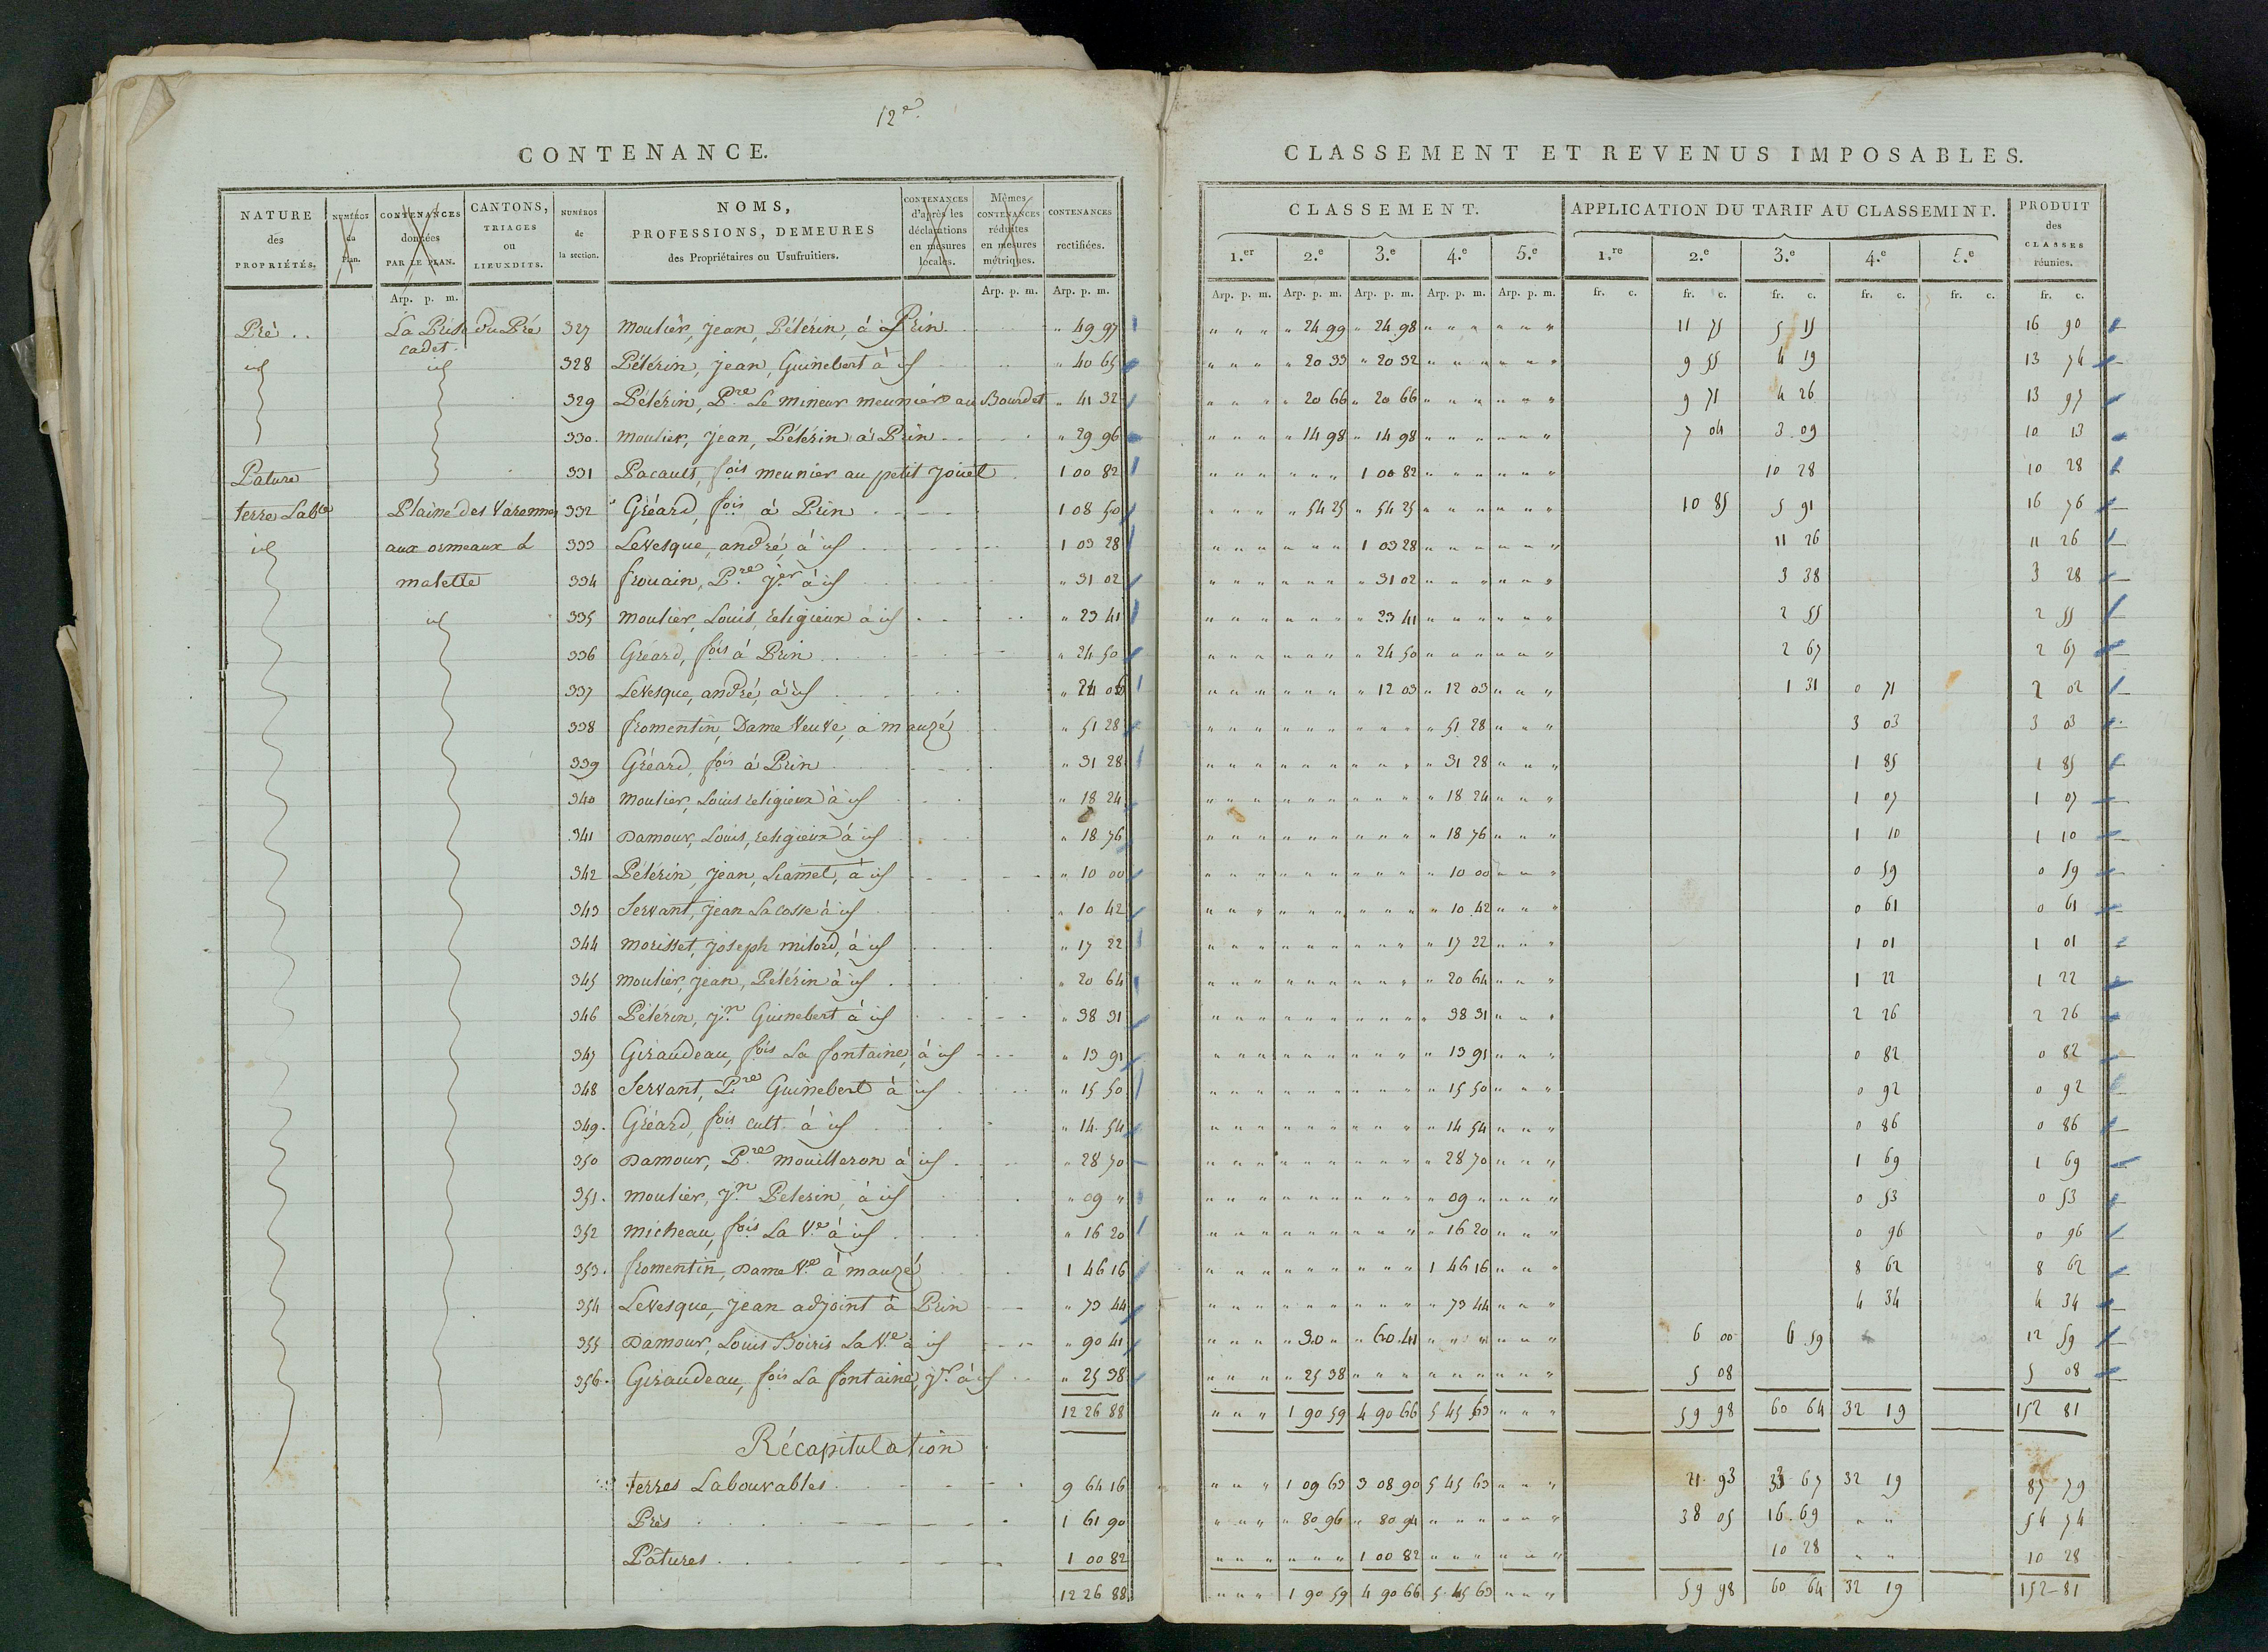 12e.
CONTENANCE.
CLASSEMENT ET REVENUS IMPOSABLES.
NATURE des PROPRIÉTÉS. | NUMÉROS du Plan. | CONTENANCES données PAR LE PLAN. | CANTONS, TRIAGES ou LIEUXDITS. | NUMÉROS de la section. | NOMS, PROFESSIONS, DEMEURES des Propriétaires ou Usufruitiers. | CONTENANCES d'après les déclarations en mesures locales. | Mêmes CONTENANCES réduites en mesures métriques. | CONTENANCES rectifiées. | CLASSEMENT. | APPLICATION DU TARIF AU CLASSEMINT. | PRODUIT des CLASSES réunies.
1.er | 2.e | 3.e | 4.e | 5.e | 1.re | 2.e | 3.e | 4.e | 5.e
Arp. p. m. | Arp. p. m. | Arp. p. m. | Arp. p. m. | Arp. p. m. | Arp. p. m. | Arp. p. m. | Arp. p. m. | fr. c. | fr. c. | fr. c. | fr. c. | fr. c. | fr. c.
Pré .. | La Prise du Pré cadet. | 327 | Moulier, jean, Pélérin, à Prin | " 49 97 | " 24 99 | " 24 98 | 11 75 | 5 15 | 16 90
id | id | 328 | Pélérin, jean, Guinebert à id | " 40 65 | " 20 33 | " 20 32 | 9 55 | 4 19 | 13 74
329 | Pélérin, Pre Le mineur meunier au Bourdet | " 41 32 | " 20 66 | " 20 66 | 9 71 | 4 26 | 13 97
330. | Moulier, jean, Pélérin à Prin | " 29 96 | " 14 98 | " 14 98 | 7 04 | 3 09 | 10 13
Pature | 331 | Pacault, fois meunier au petit jouet | 1 00 82 | 1 00 82 | 10 28 | 10 28
terre Lable | Plaine des Varennes | 332 | Gréard, fois à Prin | 1 08 50 | " 54 25 | " 54 25 | 10 85 | 5 91 | 16 76
id | aux ormeaux de | 333 | Levesque, andré, à id | 1 03 28 | 1 03 28 | 11 26 | 11 26
malette | 334 | frouain, Pre jer à id | " 31 02 | " 31 02 | 3 38 | 3 28
id | 335 | Moulier, Louis, religieux à id | " 23 41 | " 23 41 | 2 55 | 2 55
336 | Gréard, fois à Prin | " 24 50 | " 24 50 | 2 67 | 2 67
337 | Levesque, andré, à id | " 24 06 | " 12 03 | " 12 03 | 1 31 | 0 71 | 2 02
338 | fromentin, Dame Veuve, a mauzé | " 51 28 | " 51 28 | 3 03 | 3 03
339 | Gréard, fois à Prin | " 31 28 | " 31 28 | 1 85 | 1 85
340 | Moulier, Louis religieux à id | " 18 24 | " 18 24 | 1 07 | 1 07
341 | Damour, Louis, religieux à id | " 18 76 | " 18 76 | 1 10 | 1 10
342 | Pélérin, jean, Liamet, à id | " 10 00 | " 10 00 | 0 59 | 0 59
343 | Servant, jean Lacosse à id | " 10 42 | " 10 42 | 0 61 | 0 61
344 | Morisset, joseph milord, à id | " 17 22 | " 17 22 | 1 01 | 1 01
345 | Moulier, jean, Pélérin à id | " 20 64 | " 20 64 | 1 22 | 1 22
346 | Pélérin, jn Guinebert à id | " 38 31 | " 38 31 | 2 26 | 2 26
347 | Giraudeau, fois La fontaine, à id | " 13 91 | " 13 91 | 0 82 | 0 82
348 | Servant, Pre Guinebert à id | " 15 50 | " 15 50 | 0 92 | 0 92
349. | Gréard, fois cult. à id | " 14. 54 | " 14 54 | 0 86 | 0 86
350 | Damour, Pre mouilleron à id | " 28 70 | " 28 70 | 1 69 | 1 69
351. | Moulier, jn Pelerin, à id | " 09 " | " 09 " | 0 53 | 0 53
352 | Micheau, fois La Ve à id | " 16 20 | " 16 20 | 0 96 | 0 96
353. | fromentin, Dame Ve à mauzé | 1 46 16 | 1 46 16 | 8 62 | 8 62
354 | Levesque, jean adjoint à Prin | " 73 44 | " 73 44 | 4 34 | 4 34
355 | Damour, Louis Boiris La Ve à id | " 90 41 | " 30 " | " 60 41 | 6 00 | 6 59 | 12 59
356. | Giraudeau, fois La fontaine, jr à id | " 25 38 | " 25 38 | 5 08 | 5 08
12 26 88 | 1 90 59 | 4 90 66 | 5 45 63 | 59 98 | 60 64 | 32 19 | 152 81
Récapitulation
terres Labourables | 9 64 16 | 1 09 63 | 3 08 90 | 5 45 63 | 21 93 | 33 67 | 32 19 | 87 79
Prés | 1 61 90 | " 80 96 | " 80 94 | 38 05 | 16 69 | " " | 54 74
Pâtures | 1 00 82 | 1 00 82 | 10 28 | " " | 10 28
12 26 88 | 1 90 59 | 4 90 66 | 5 45 63 | 59 98 | 60 64 | 32 19 | 152-81